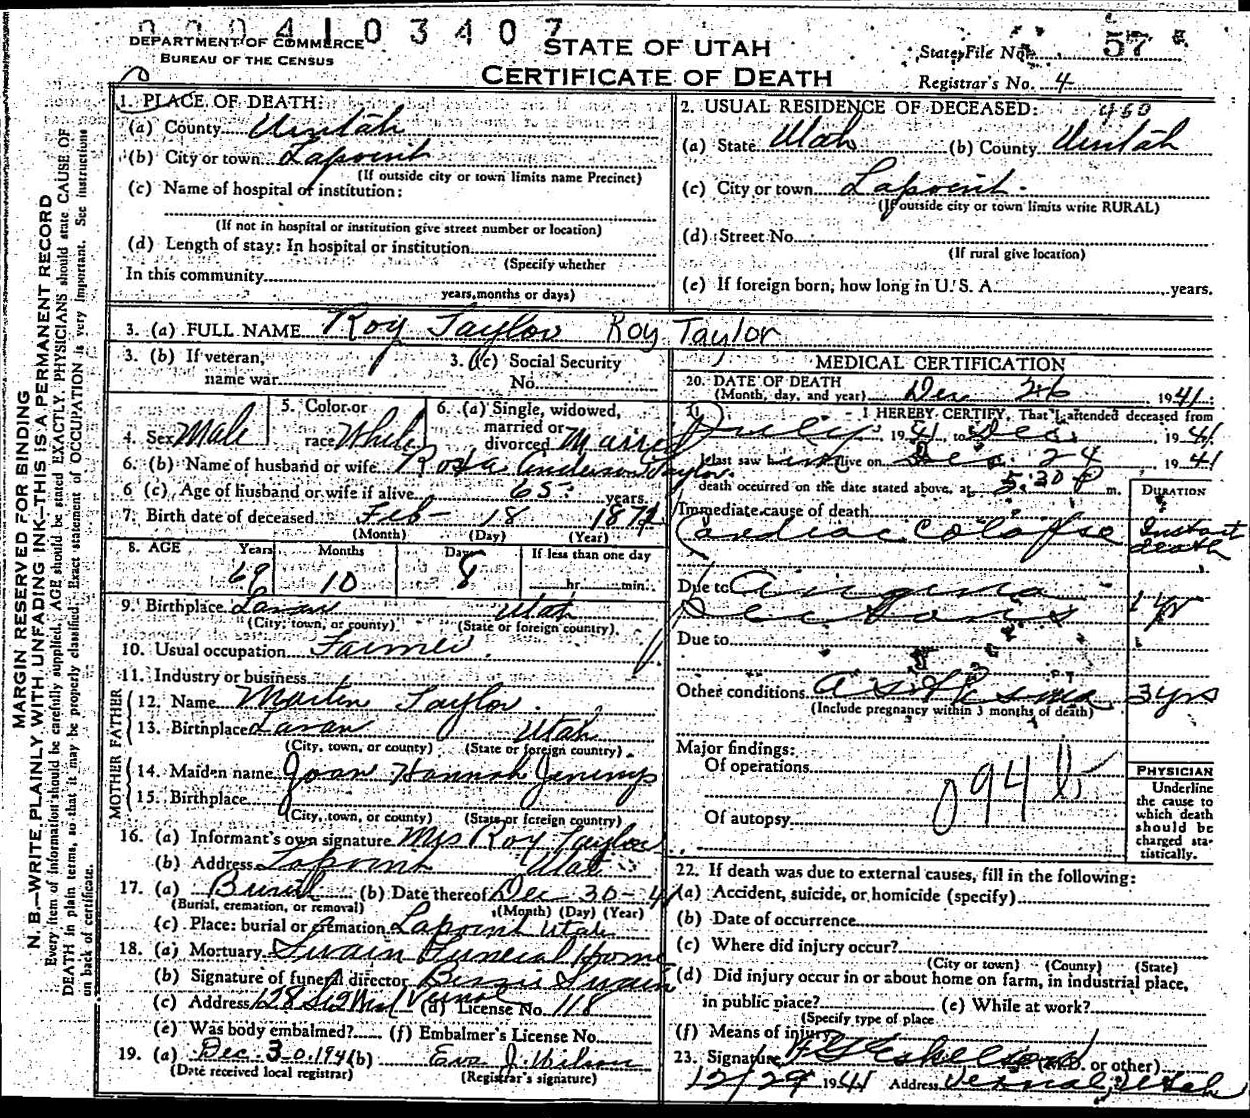 0004103407
DEPARTMENT OF COMMERCE
BUREAU OF THE CENSUS
STATE OF UTAH
CERTIFICATE OF DEATH
State File No. 57
Registrar's No. 4
MARGIN RESERVED FOR BINDING
N. B.—WRITE PLAINLY WITH UNFADING INK—THIS IS A PERMANENT RECORD
Every item of information should be carefully supplied. AGE should be stated EXACTLY. PHYSICIANS should state CAUSE OF
DEATH in plain terms, so that it may be properly classified. Exact statement of OCCUPATION is very important. See instructions
on back of certificate.
1. PLACE OF DEATH:
(a) County Uintah
(b) City or town Lapoint
(If outside city or town limits name Precinct)
(c) Name of hospital of institution:
(If not in hospital or institution give street number or location)
(d) Length of stay: In hospital or institution
(Specify whether
In this community
years, months or days)
2. USUAL RESIDENCE OF DECEASED: 460
(a) State Utah (b) County Uintah
(c) City or town Lapoint
(If outside city or town limits write RURAL)
(d) Street No.
(If rural give location)
(e) If foreign born, how long in U. S. A. years.
3. (a) FULL NAME Roy Taylor Roy Taylor
3. (b) If veteran,
name war
3. (c) Social Security
No.
4. Sex Male
5. Color or
race White
6. (a) Single, widowed,
married or
divorced Married
6. (b) Name of husband or wife Rosa Anderson Taylor
6 (c) Age of husband or wife if alive 65 years
7. Birth date of deceased Feb 18 1872
(Month) (Day) (Year)
8. AGE Years Months Days If less than one day
69 10 8 hr. min.
9. Birthplace Levan Utah
(City, town, or county) (State or foreign country)
10. Usual occupation Farmer
11. Industry or business
FATHER
12. Name Martin Taylor
13. Birthplace Levan Utah
(City, town, or county) (State or foreign country)
MOTHER
14. Maiden name Joan Hannah
15. Birthplace
(City, town, or county) (State or foreign country)
16. (a) Informant's own signature Mrs Roy Taylor
(b) Address Lapoint Utah
17. (a) Burial (b) Date thereof Dec 30-41
(Burial, cremation, or removal) (Month) (Day) (Year)
(c) Place: burial or cremation Lapoint Utah
18. (a) Mortuary Swain Funeral Home
(b) Signature of funeral director Swain
(c) Address 128 Vernal (d) License No. 118
(e) Was body embalmed? (f) Embalmer's License No.
19. (a) Dec. 30, 1941 (b) Eva J. Wilson
(Date received local registrar) (Registrar's signature)
MEDICAL CERTIFICATION
20. DATE OF DEATH
(Month, day, and year) Dec 26 1941
21. I HEREBY CERTIFY, That I attended deceased from
July, 1941, to Dec., 1941
I last saw him alive on Dec. 24 1941
death occurred on the date stated above, at 5:30 P m.
DURATION
Immediate cause of death
Cardiac Colapse Instant death
Due to Angina
Pectoris 1 yr
Due to
Other conditions asthsma 3 yrs
(Include pregnancy within 3 months of death)
Major findings:
Of operations
094 b
Of autopsy
PHYSICIAN
Underline
the cause to
which death
should be
charged sta-
tistically.
22. If death was due to external causes, fill in the following:
(a) Accident, suicide, or homicide (specify)
(b) Date of occurrence
(c) Where did injury occur?
(City or town) (County) (State)
(d) Did injury occur in or about home on farm, in industrial place,
in public place? (e) While at work?
(Specify type of place
(f) Means of injury
23. Signature Eskelson (M.D. or other)
12/29 1941 Address Vernal, Utah